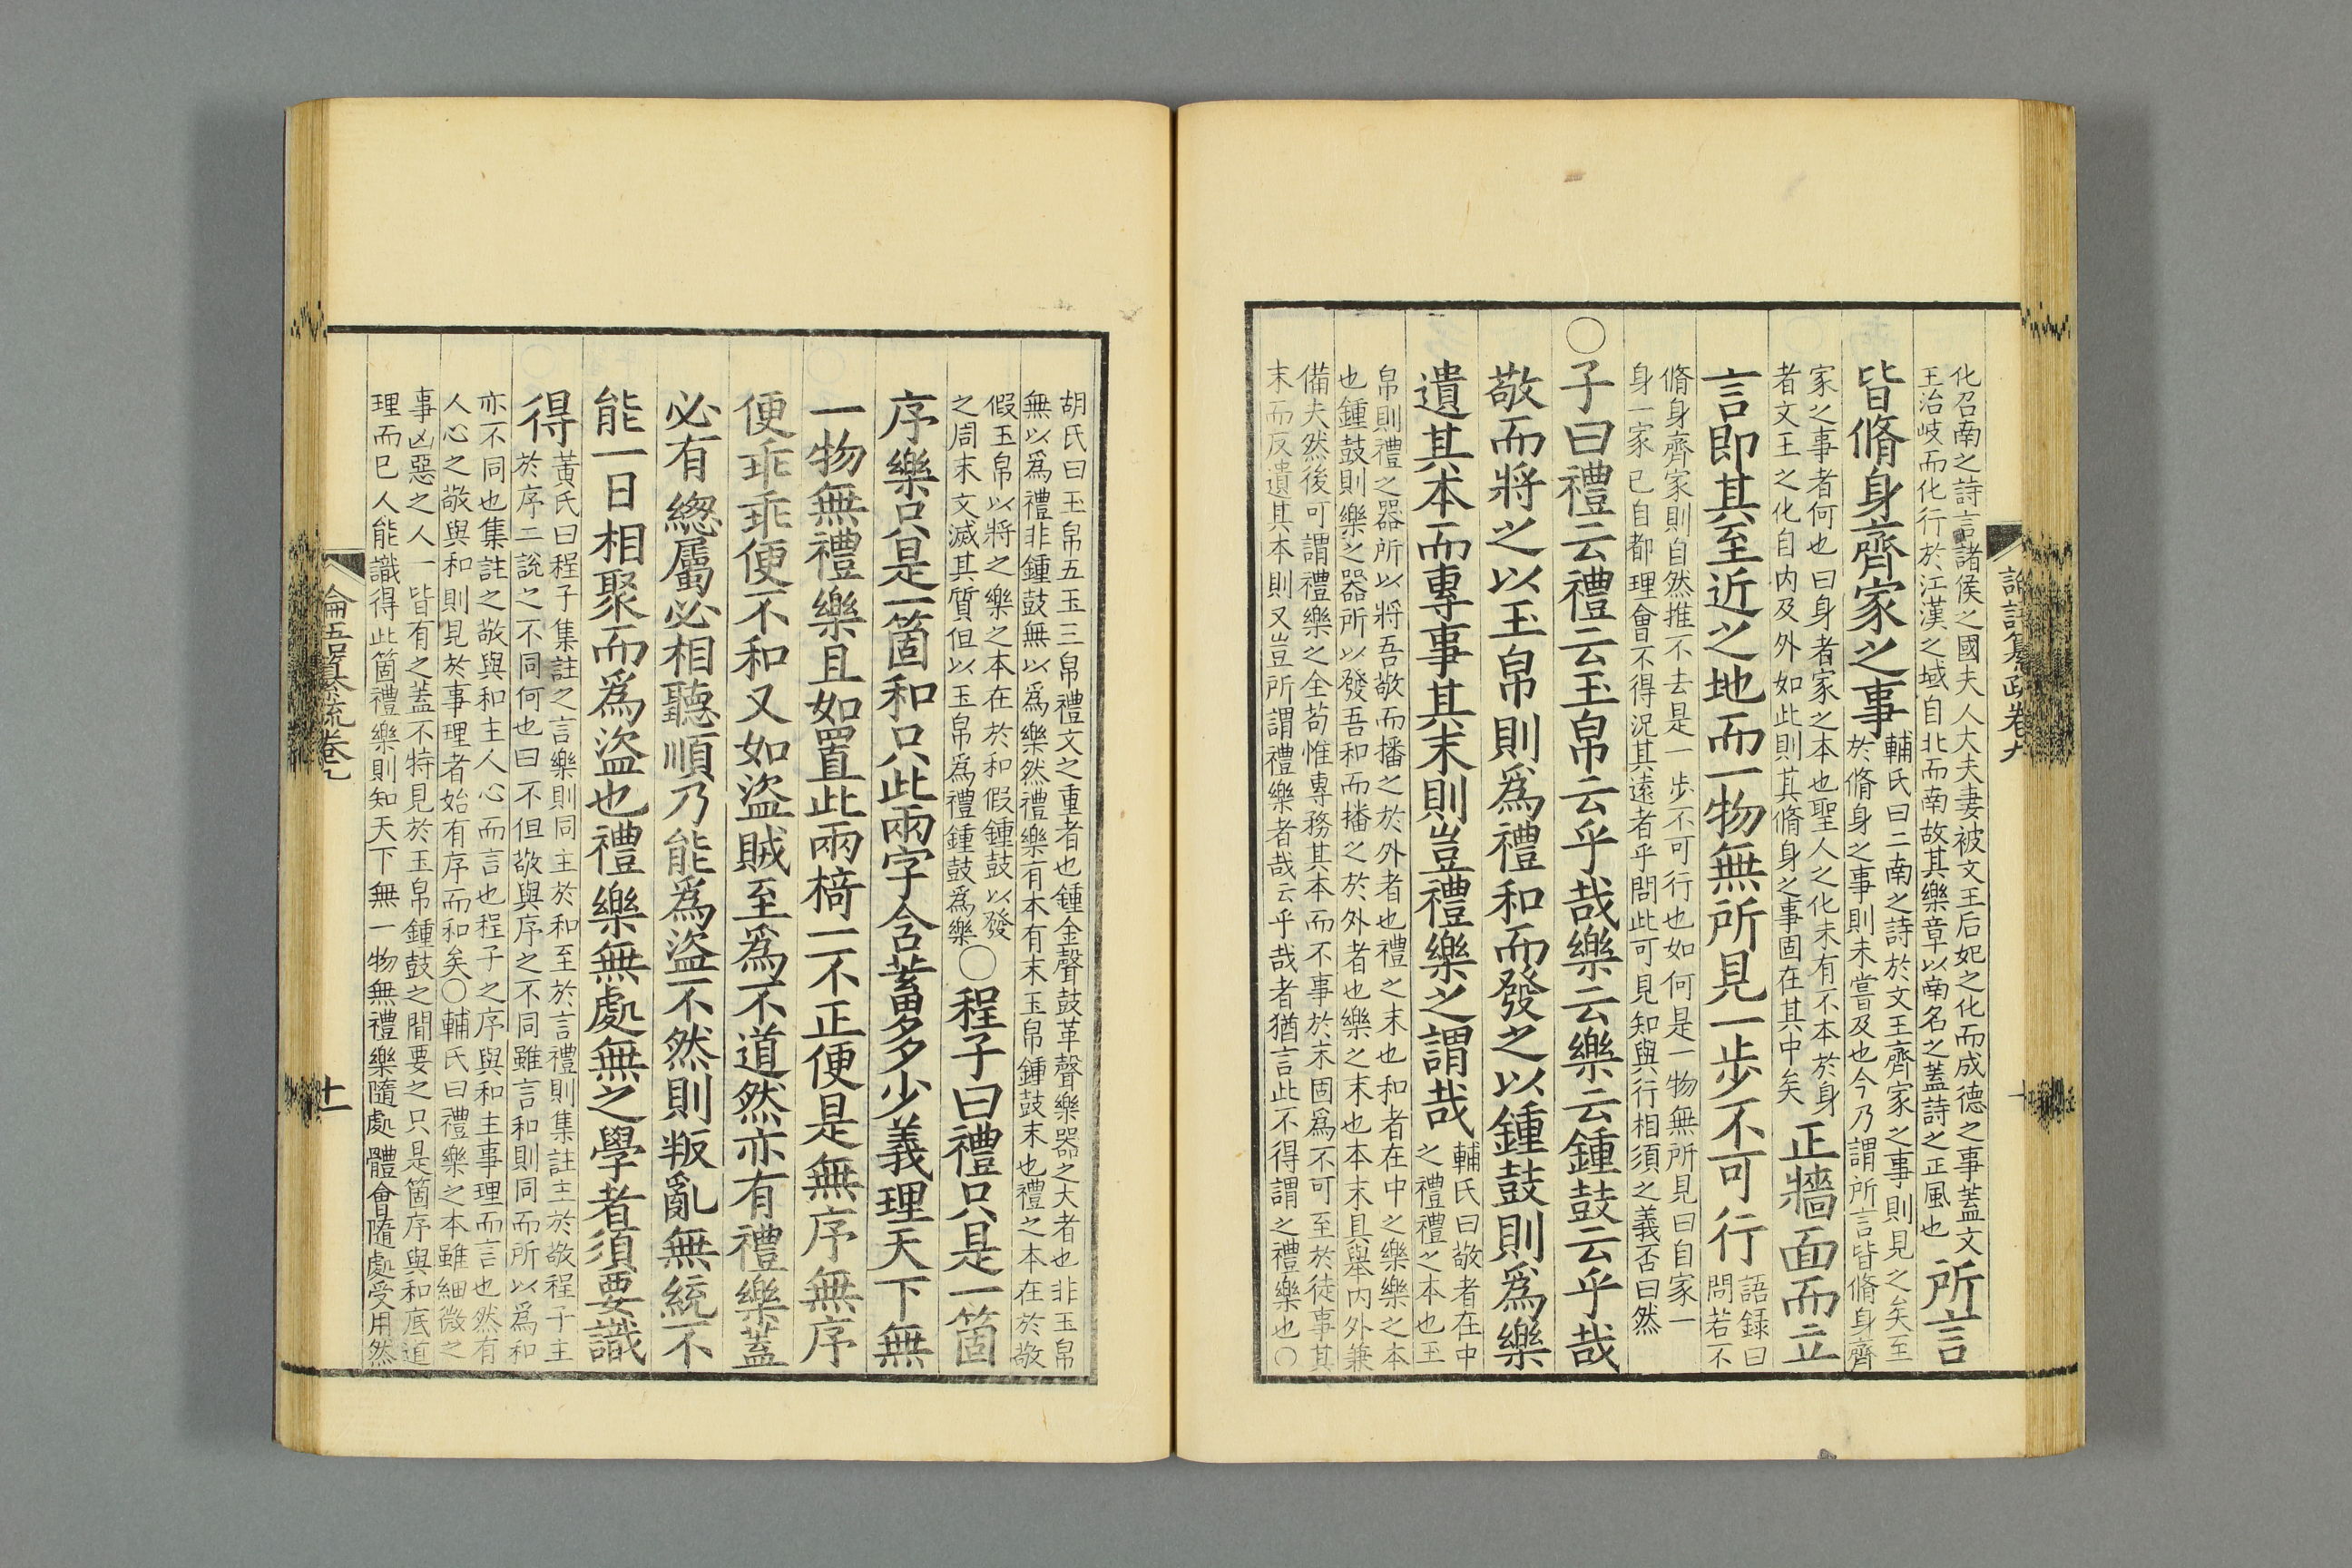 化召南之詩言諸侯之國夫人大夫妻被文王后妃之化而成德之事蓋文
王治岐而化行於江漢之域自北而南故其樂章以南名之蓋詩之正風也
所言
皆脩身齊家之事
輔氏曰二南之詩於文王齊家之事則見之矣至
於脩身之事則未嘗及也今乃謂所言皆脩身齊
家之事者何也曰身者家之本也聖人之化未有不本於身
者文王之化自内及外如此則其脩身之事固在其中矣
正牆面而立
言即其至近之地而一物無所見一步不可行
語録曰
問若不
脩身齊家則自然推不去是一步不可行也如何是一物無所見曰自家一
身一家已自都理會不得況其遠者乎問此可見知與行相須之義否曰然
○子曰禮云禮云玉帛云乎哉樂云樂云鍾鼓云乎哉
敬而將之以玉帛則爲禮和而發之以鍾鼓則爲樂
遺其本而專事其末則豈禮樂之謂哉
輔氏曰敬者在中
之禮禮之本也玉
帛則禮之器所以將吾敬而播之於外者也禮之末也和者在中之樂樂之本
也鍾鼓則樂之器所以發吾和而播之於外者也樂之末也本末具舉内外兼
備夫然後可謂禮樂之全苟惟專務其本而不事於末固爲不可至於徒事其
末而反遺其本則又豈所謂禮樂者哉云乎哉者猶言此不得謂之禮樂也○
胡氏曰玉帛五玉三帛禮文之重者也鍾金聲鼓革聲樂器之大者也非玉帛
無以爲禮非鍾鼓無以爲樂然禮樂有本有末玉帛鍾鼓末也禮之本在於敬
假玉帛以將之樂之本在於和假鍾鼓以發
之周末文滅其質但以玉帛爲禮鍾鼓爲樂
○程子曰禮只是一箇
序樂只是一箇和只此兩字含蓄多少義理天下無
一物無禮樂且如置此兩椅一不正便是無序無序
便乖乖便不和又如盜賊至爲不道然亦有禮樂蓋
必有緫屬必相聽順乃能爲盜不然則叛亂無統不
能一日相聚而爲盜也禮樂無處無之學者須要識
得
黃氏曰程子集註之言樂則同主於和至於言禮則集註主於敬程子主
於序二說之不同何也曰不但敬與序之不同雖言和則同而所以爲和
亦不同也集註之敬與和主人心而言也程子之序與和主事理而言也然有
人心之敬與和則見於事理者始有序而和矣○輔氏曰禮樂之本雖細微之
事凶惡之人一皆有之蓋不特見於玉帛鍾鼓之間要之只是箇序與和底道
理而已人能識得此箇禮樂則知天下無一物無禮樂隨處體會隨處受用然